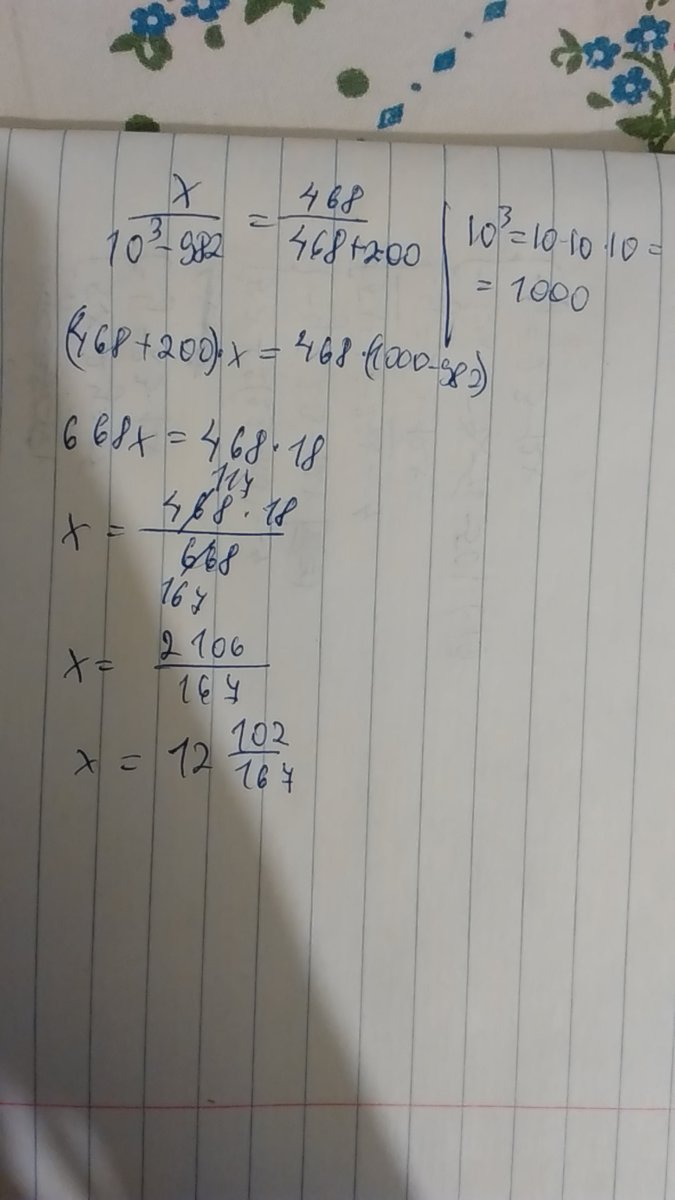 x/(10³-982) = 468/(468+200)
10³=10·10·10=
=1000
(468+200)·x=468·(1000-982)
668x=468·18
117
x = 468·18/668
167
x= 2106/167
x = 12 102/167